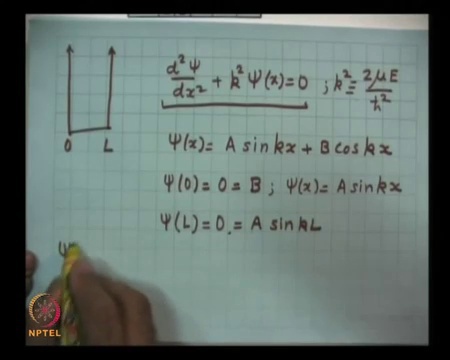 d²Ψ/dx² + k² Ψ(x) = 0 ; k² ≡ 2μE/ħ²
0 L
Ψ(x) = A sin kx + B cos kx
Ψ(0) = 0 = B ; Ψ(x) = A sin kx
Ψ(L) = 0 . = A sin kL
Ψ
NPTEL